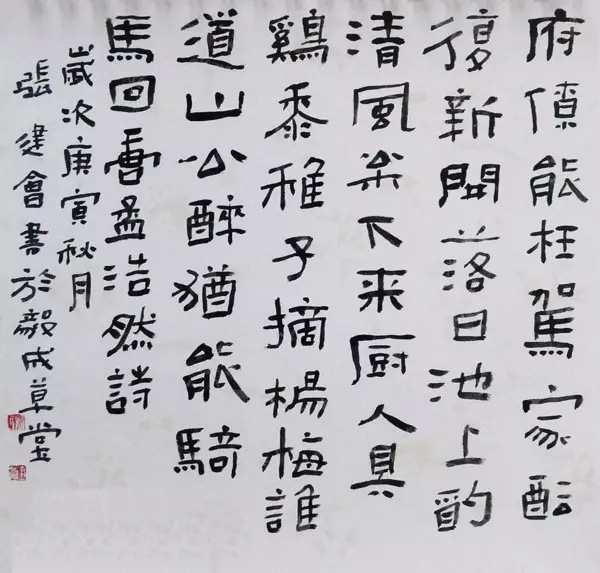 府僚能枉駕家酝
復新開落日池上酌
清風松下来厨人具
鷄黍稚子摘楊梅誰
道山公醉猶能騎
馬回書孟浩然詩
歲次庚寅秋月
張建會書於毅成草堂